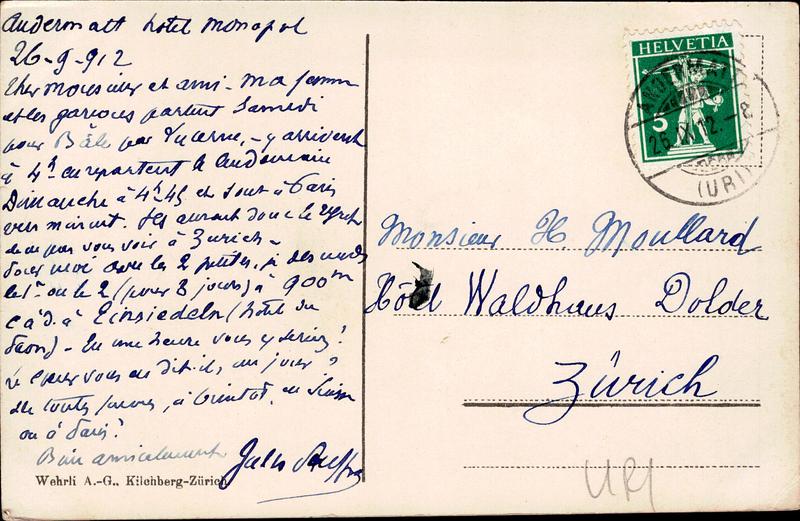 Andermatt hotel Monopol
26-9-912
Cher Monsieur et ami - Ma femme
et les garçons partent Samedi
pour Bâle par Lucerne, - y arrivent
à 4h en repartent le lendemain
Dimanche à 4h45 et sont à Paris
vers minuit. Ils auront donc le regret
de ne pas vous voir à Zurich -
Pour moi avec les 2 petites, je descends
le 1er ou le 2 (pour 8 jours) à 900m
c à d. à Einsiedeln (hôtel du
Paon) - En une heure vous y seriez!
Le cœur vous en dit-il, un jour?
De toutes façons, à bientôt, en Suisse
ou à Paris?
Bien amicalement Jules
Wehrli A.-G., Kilchberg-Zürich
HELVETIA
5
ANDERMATT
26.IX.12.-8
(URI)
Monsieur H. Moullard
Hôtel Waldhaus Dolder
Zürich
URI